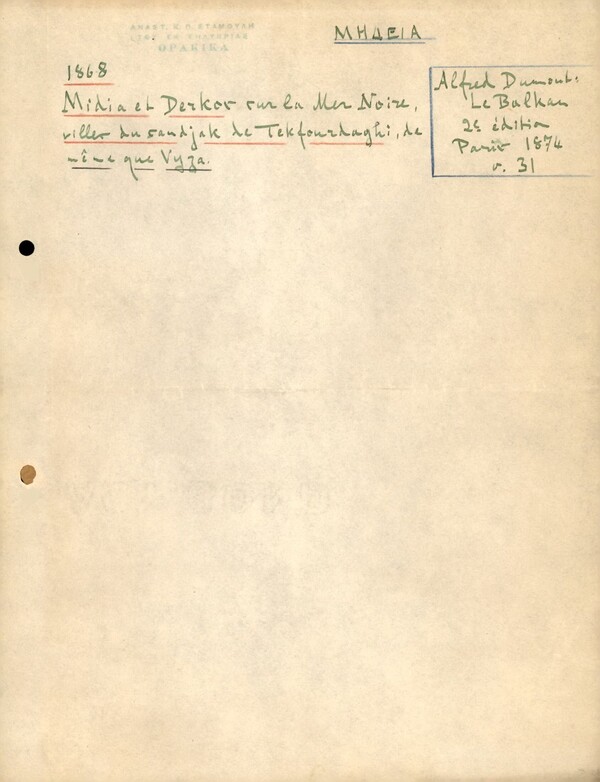 ΑΝΑΣΤ. Κ. Π. ΣΤΑΜΟΥΛΗ
ΘΡΑΚΙΚΑ
ΜΗΔΕΙΑ
1868
Midia et Derkos sur la Mer Noire,
villes du sandjak de Tekfourdaghi, de
même que Vyza.
Alfred Dumont:
Le Balkan
2e édition
Paris 1874
p. 31